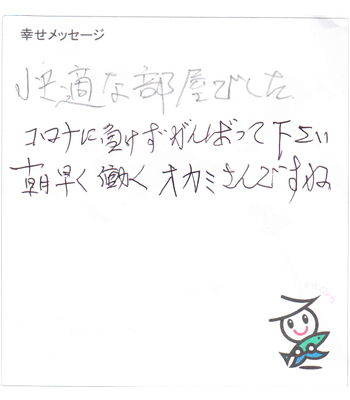 幸せメッセージ
快適な部屋でした
コロナに負けずがんばって下さい
朝早く働くオカミさんですね